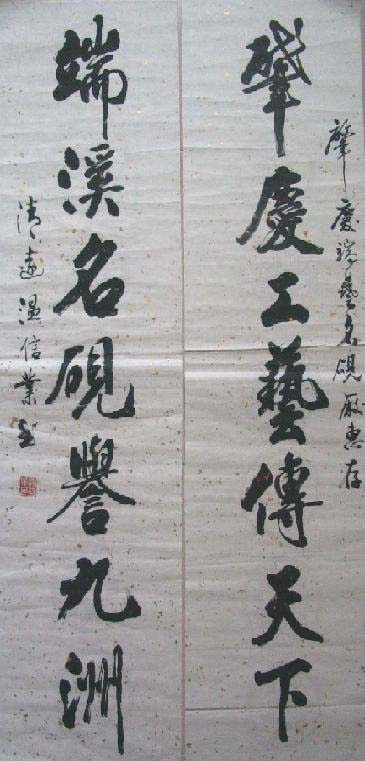 肇慶端藝名硯廠惠存
肇慶工藝傳天下
端溪名硯譽九洲
清遠溫信業書